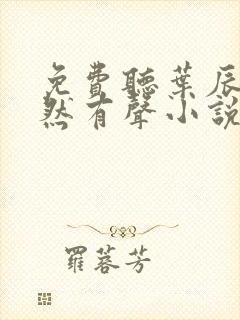 免費聽葉辰
然有聲小說
羅蓉芳